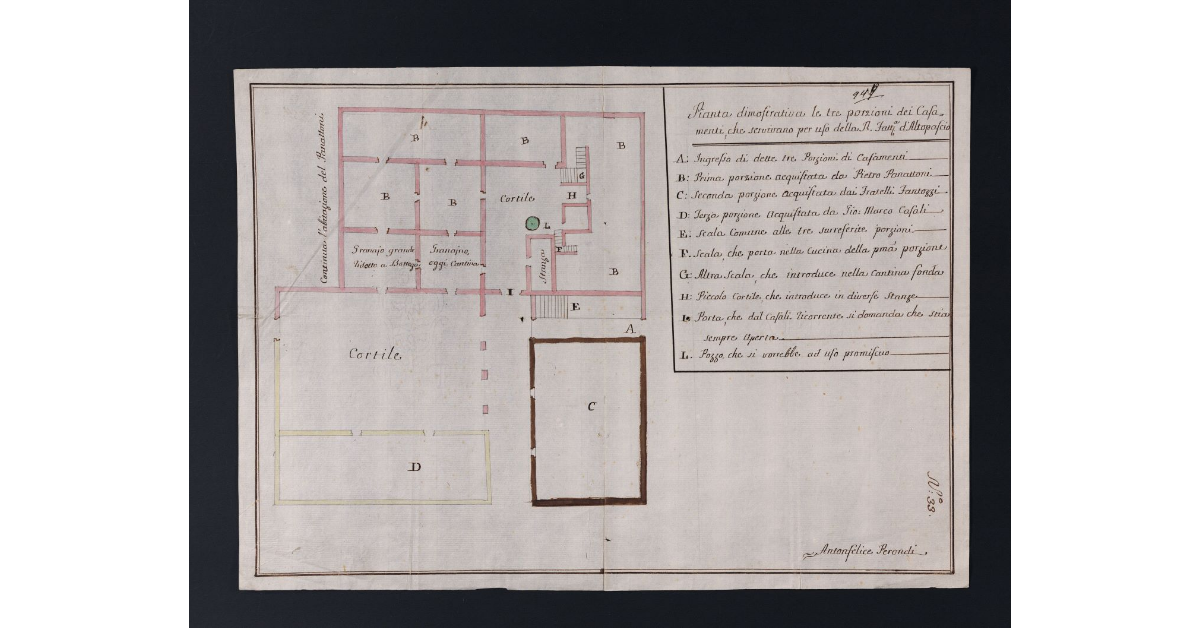 949
Pianta dimostrativa le tre porzioni dei Casa-
menti, che servivano per uso della R. Fatt.ª d'Altopascio
A: Ingresso di dette tre Porzioni di Casamenti
B: Prima porzione acquistata da Pietro Panattoni
C: Seconda porzione acquistata dai Fratelli Fantozzi
D: Terza porzione acquistata da Gio: Marco Casali
E: Scala Comune alle tre surreferite porzioni
F: Scala, che porta nella Cucina della pma porzione
G: Altra Scala, che introduce nella Cantina fonda
H: Piccolo Cortile, che introduce in diverse Stanze
I: Porta, che dal Casali Ricorrente si domanda che stia
sempre aperta
L. Pozzo, che si vorrebbe ad uso promiscuo
Continua l'abitazione del Panattoni
B
B
B
B
B
G
H
Cortile
L
F
Granajo grande
ridotto a Bottega
Granajno,
oggi Cantina
Stanza
B
I
E
A
Cortile
C
D
N.º 33.
Antonfelice Perondi